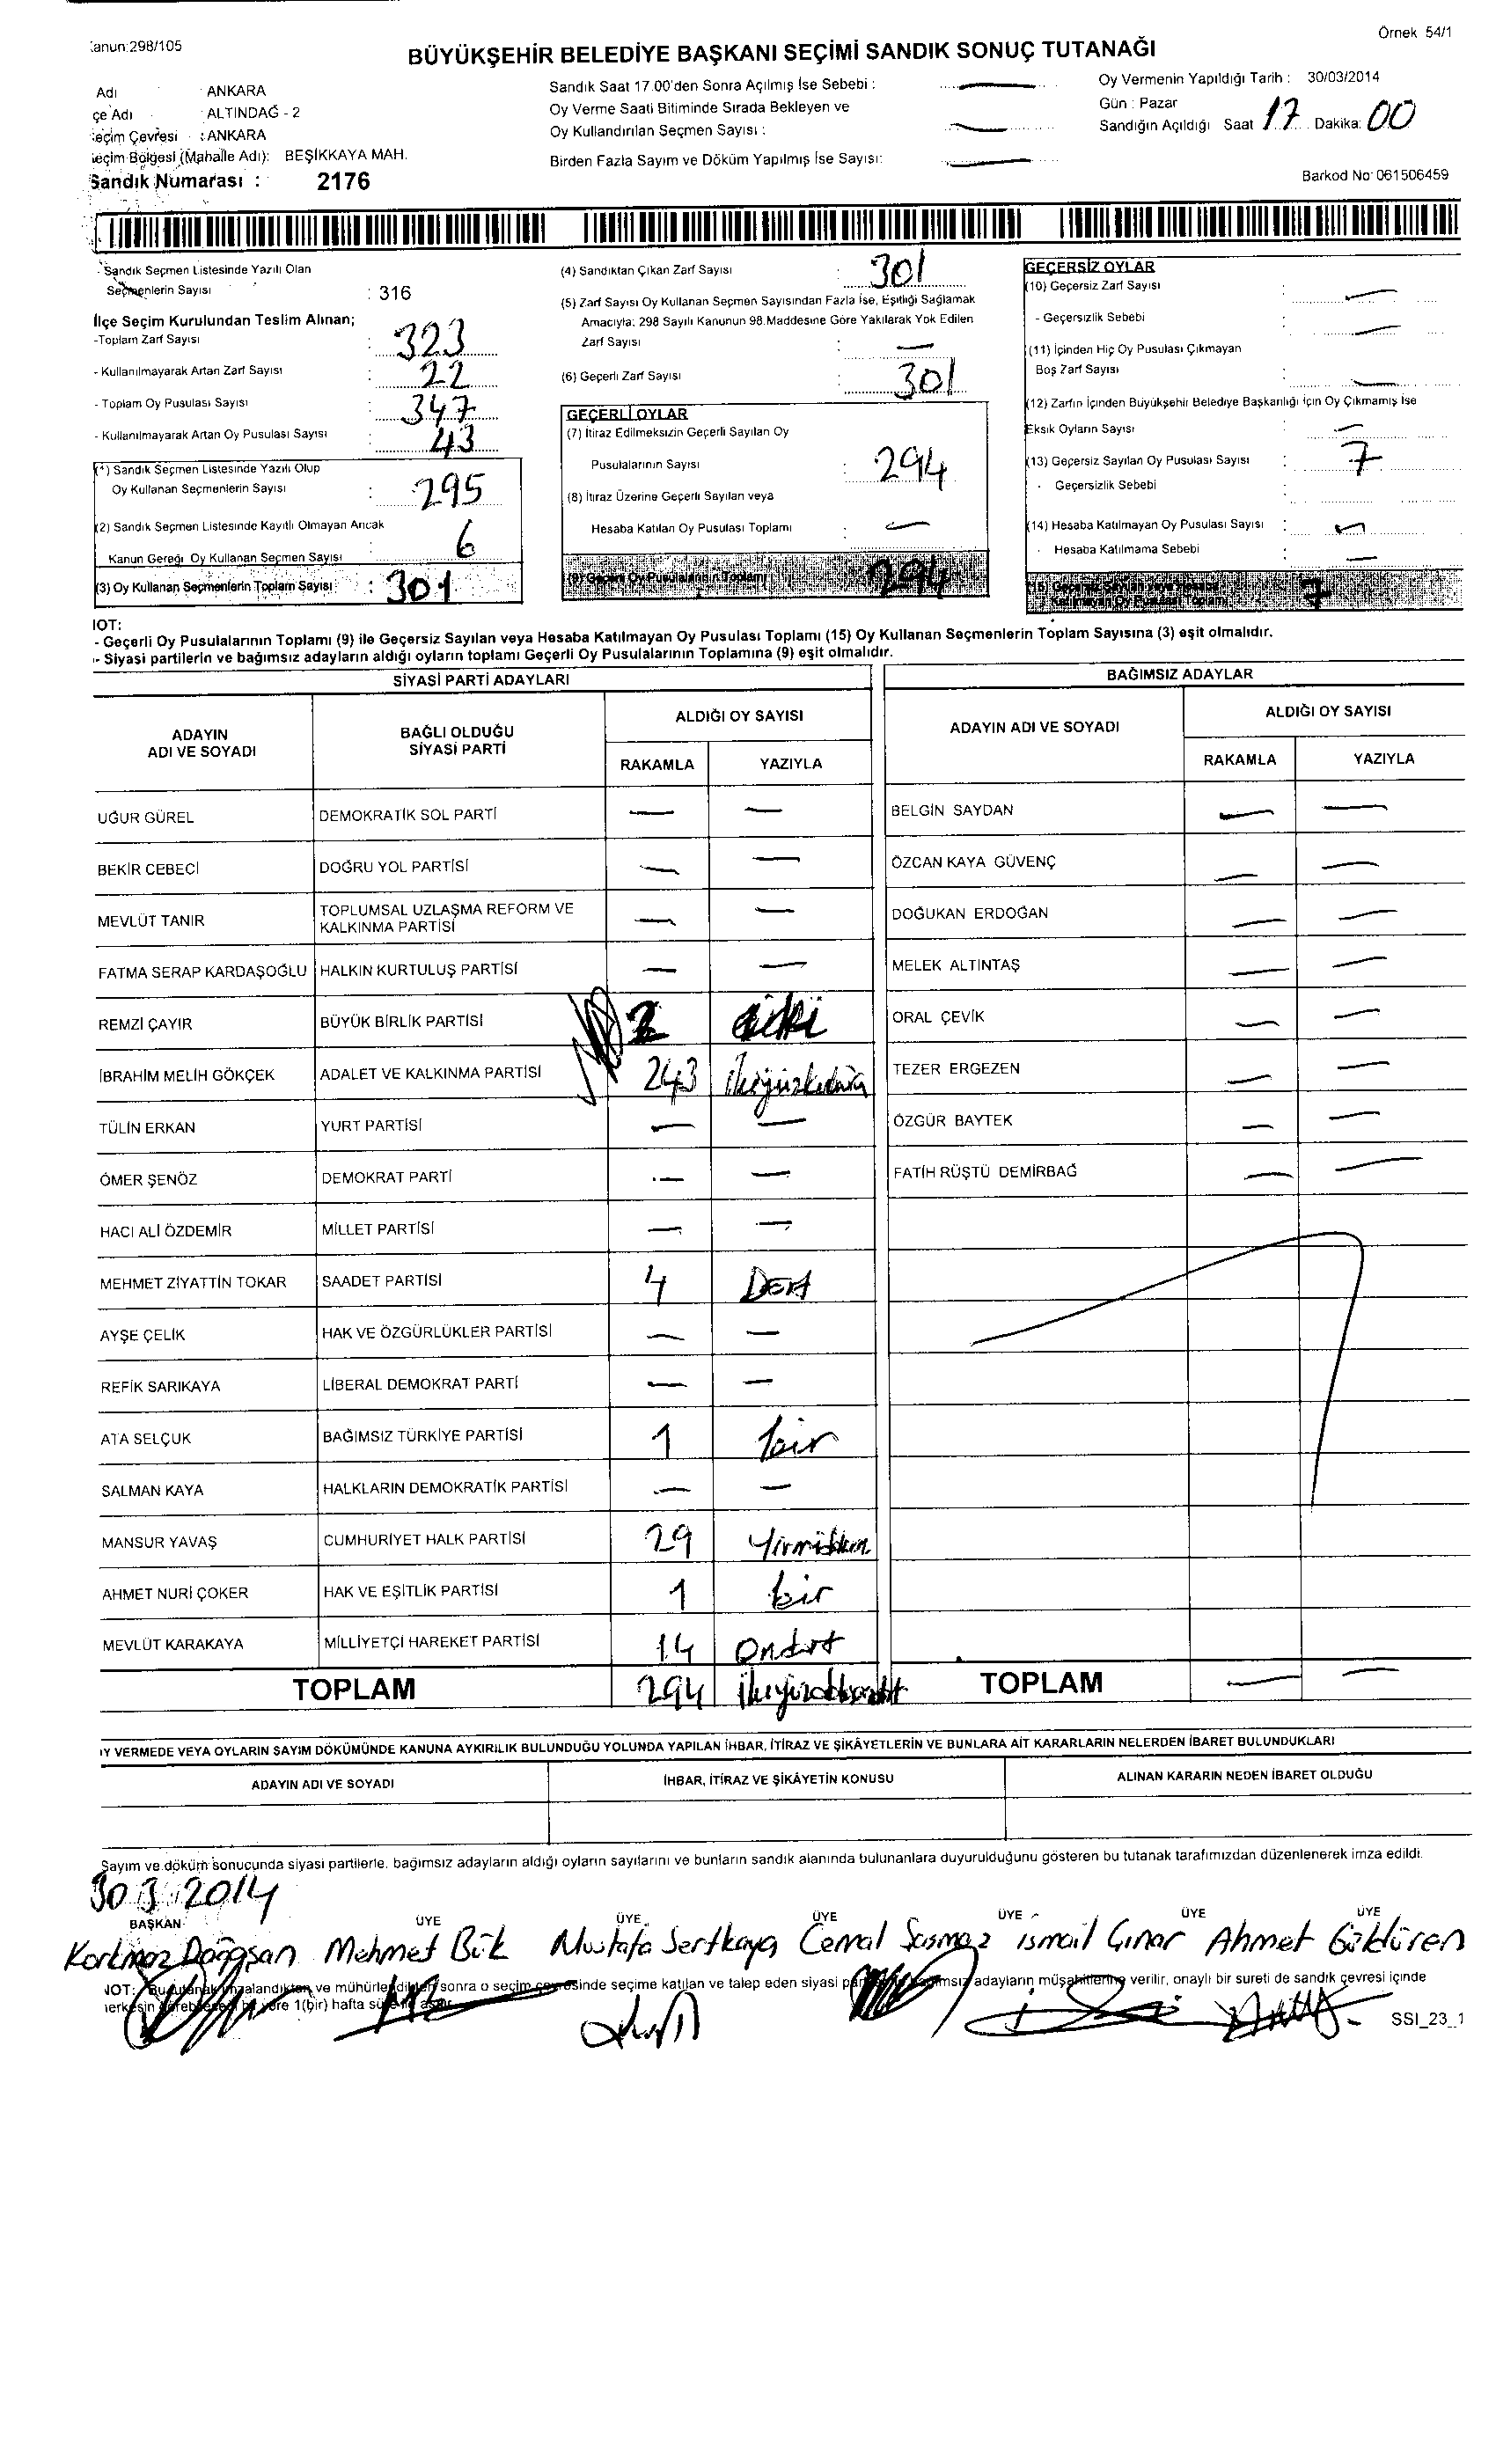 Kanun:298/105
Örnek 54/1
BÜYÜKŞEHİR BELEDİYE BAŞKANI SEÇİMİ SANDIK SONUÇ TUTANAĞI
Adı : ANKARA
çe Adı : ALTINDAĞ - 2
eçim Çevresi : ANKARA
eçim Bölgesi (Mahalle Adı): BEŞİKKAYA MAH.
Sandık Numarası : 2176
Sandık Saat 17.00'den Sonra Açılmış İse Sebebi : —
Oy Verme Saati Bitiminde Sırada Bekleyen ve
Oy Kullandırılan Seçmen Sayısı : —
Birden Fazla Sayım ve Döküm Yapılmış İse Sayısı: —
Oy Vermenin Yapıldığı Tarih : 30/03/2014
Gün : Pazar
Sandığın Açıldığı Saat 17 Dakika: 00
Barkod No: 061506459
- Sandık Seçmen Listesinde Yazılı Olan
Seçmenlerin Sayısı : 316
İlçe Seçim Kurulundan Teslim Alınan;
-Toplam Zarf Sayısı : 323
- Kullanılmayarak Artan Zarf Sayısı : 22
- Toplam Oy Pusulası Sayısı : 347
- Kullanılmayarak Artan Oy Pusulası Sayısı : 43
(1) Sandık Seçmen Listesinde Yazılı Olup
Oy Kullanan Seçmenlerin Sayısı : 295
(2) Sandık Seçmen Listesinde Kayıtlı Olmayan Ancak
Kanun Gereği Oy Kullanan Seçmen Sayısı : 6
(3) Oy Kullanan Seçmenlerin Toplam Sayısı : 301
(4) Sandıktan Çıkan Zarf Sayısı : 301
(5) Zarf Sayısı Oy Kullanan Seçmen Sayısından Fazla İse, Eşitliği Sağlamak
Amacıyla; 298 Sayılı Kanunun 98.Maddesine Göre Yakılarak Yok Edilen
Zarf Sayısı : —
(6) Geçerli Zarf Sayısı : 301
GEÇERLİ OYLAR
(7) İtiraz Edilmeksizin Geçerli Sayılan Oy
Pusulalarının Sayısı : 294
(8) İtiraz Üzerine Geçerli Sayılan veya
Hesaba Katılan Oy Pusulası Toplamı : —
(9) Geçerli Oy Pusulalarının Toplamı 294
GEÇERSİZ OYLAR
(10) Geçersiz Zarf Sayısı : —
- Geçersizlik Sebebi : —
(11) İçinden Hiç Oy Pusulası Çıkmayan
Boş Zarf Sayısı : —
(12) Zarfın İçinden Büyükşehir Belediye Başkanlığı İçin Oy Çıkmamış İse
Eksik Oyların Sayısı —
(13) Geçersiz Sayılan Oy Pusulası Sayısı : 7
- Geçersizlik Sebebi :
(14) Hesaba Katılmayan Oy Pusulası Sayısı : —
- Hesaba Katılmama Sebebi : —
(15) Geçersiz Sayılan veya Hesaba
Katılmayan Oy Pusulası Toplamı : 7
NOT:
- Geçerli Oy Pusulalarının Toplamı (9) ile Geçersiz Sayılan veya Hesaba Katılmayan Oy Pusulası Toplamı (15) Oy Kullanan Seçmenlerin Toplam Sayısına (3) eşit olmalıdır.
- Siyasi partilerin ve bağımsız adayların aldığı oyların toplamı Geçerli Oy Pusulalarının Toplamına (9) eşit olmalıdır.
SİYASİ PARTİ ADAYLARI
ADAYIN ADI VE SOYADI BAĞLI OLDUĞU SİYASİ PARTİ ALDIĞI OY SAYISI
RAKAMLA YAZIYLA
UĞUR GÜREL DEMOKRATİK SOL PARTİ — —
BEKİR CEBECİ DOĞRU YOL PARTİSİ — —
MEVLÜT TANIR TOPLUMSAL UZLAŞMA REFORM VE KALKINMA PARTİSİ — —
FATMA SERAP KARDAŞOĞLU HALKIN KURTULUŞ PARTİSİ — —
REMZİ ÇAYIR BÜYÜK BİRLİK PARTİSİ 2 iki
İBRAHİM MELİH GÖKÇEK ADALET VE KALKINMA PARTİSİ 243
TÜLİN ERKAN YURT PARTİSİ — —
ÖMER ŞENÖZ DEMOKRAT PARTİ — —
HACI ALİ ÖZDEMİR MİLLET PARTİSİ — —
MEHMET ZİYATTİN TOKAR SAADET PARTİSİ 4 Dört
AYŞE ÇELİK HAK VE ÖZGÜRLÜKLER PARTİSİ — —
REFİK SARIKAYA LİBERAL DEMOKRAT PARTİ — —
ATA SELÇUK BAĞIMSIZ TÜRKİYE PARTİSİ 1 bir
SALMAN KAYA HALKLARIN DEMOKRATİK PARTİSİ — —
MANSUR YAVAŞ CUMHURİYET HALK PARTİSİ 29
AHMET NURİ ÇOKER HAK VE EŞİTLİK PARTİSİ 1 bir
MEVLÜT KARAKAYA MİLLİYETÇİ HAREKET PARTİSİ 14 Ondört
TOPLAM 294
BAĞIMSIZ ADAYLAR
ADAYIN ADI VE SOYADI ALDIĞI OY SAYISI
RAKAMLA YAZIYLA
BELGİN SAYDAN — —
ÖZCAN KAYA GÜVENÇ — —
DOĞUKAN ERDOĞAN — —
MELEK ALTINTAŞ — —
ORAL ÇEVİK — —
TEZER ERGEZEN — —
ÖZGÜR BAYTEK — —
FATİH RÜŞTÜ DEMİRBAĞ — —
TOPLAM — —
OY VERMEDE VEYA OYLARIN SAYIM DÖKÜMÜNDE KANUNA AYKIRILIK BULUNDUĞU YOLUNDA YAPILAN İHBAR, İTİRAZ VE ŞİKÂYETLERİN VE BUNLARA AİT KARARLARIN NELERDEN İBARET BULUNDUKLARI
ADAYIN ADI VE SOYADI İHBAR, İTİRAZ VE ŞİKÂYETİN KONUSU ALINAN KARARIN NEDEN İBARET OLDUĞU
Sayım ve döküm sonucunda siyasi partilerle, bağımsız adayların aldığı oyların sayılarını ve bunların sandık alanında bulunanlara duyurulduğunu gösteren bu tutanak tarafımızdan düzenlenerek imza edildi.
30.3.2014
BAŞKAN ÜYE ÜYE ÜYE ÜYE ÜYE ÜYE
Korkmaz Mehmet Bük Mustafa Sertkaya Cemal Susmaz ismail Çınar Ahmet Göktüren
NOT: Bu tutanak imzalandıktan ve mühürlendikten sonra o seçim çevresinde seçime katılan ve talep eden siyasi bağımsız adayların müşahitlerine verilir, onaylı bir sureti de sandık çevresi içinde
herkesin görebileceği bir yere 1(bir) hafta süreyle asılır.
SSI_23_1